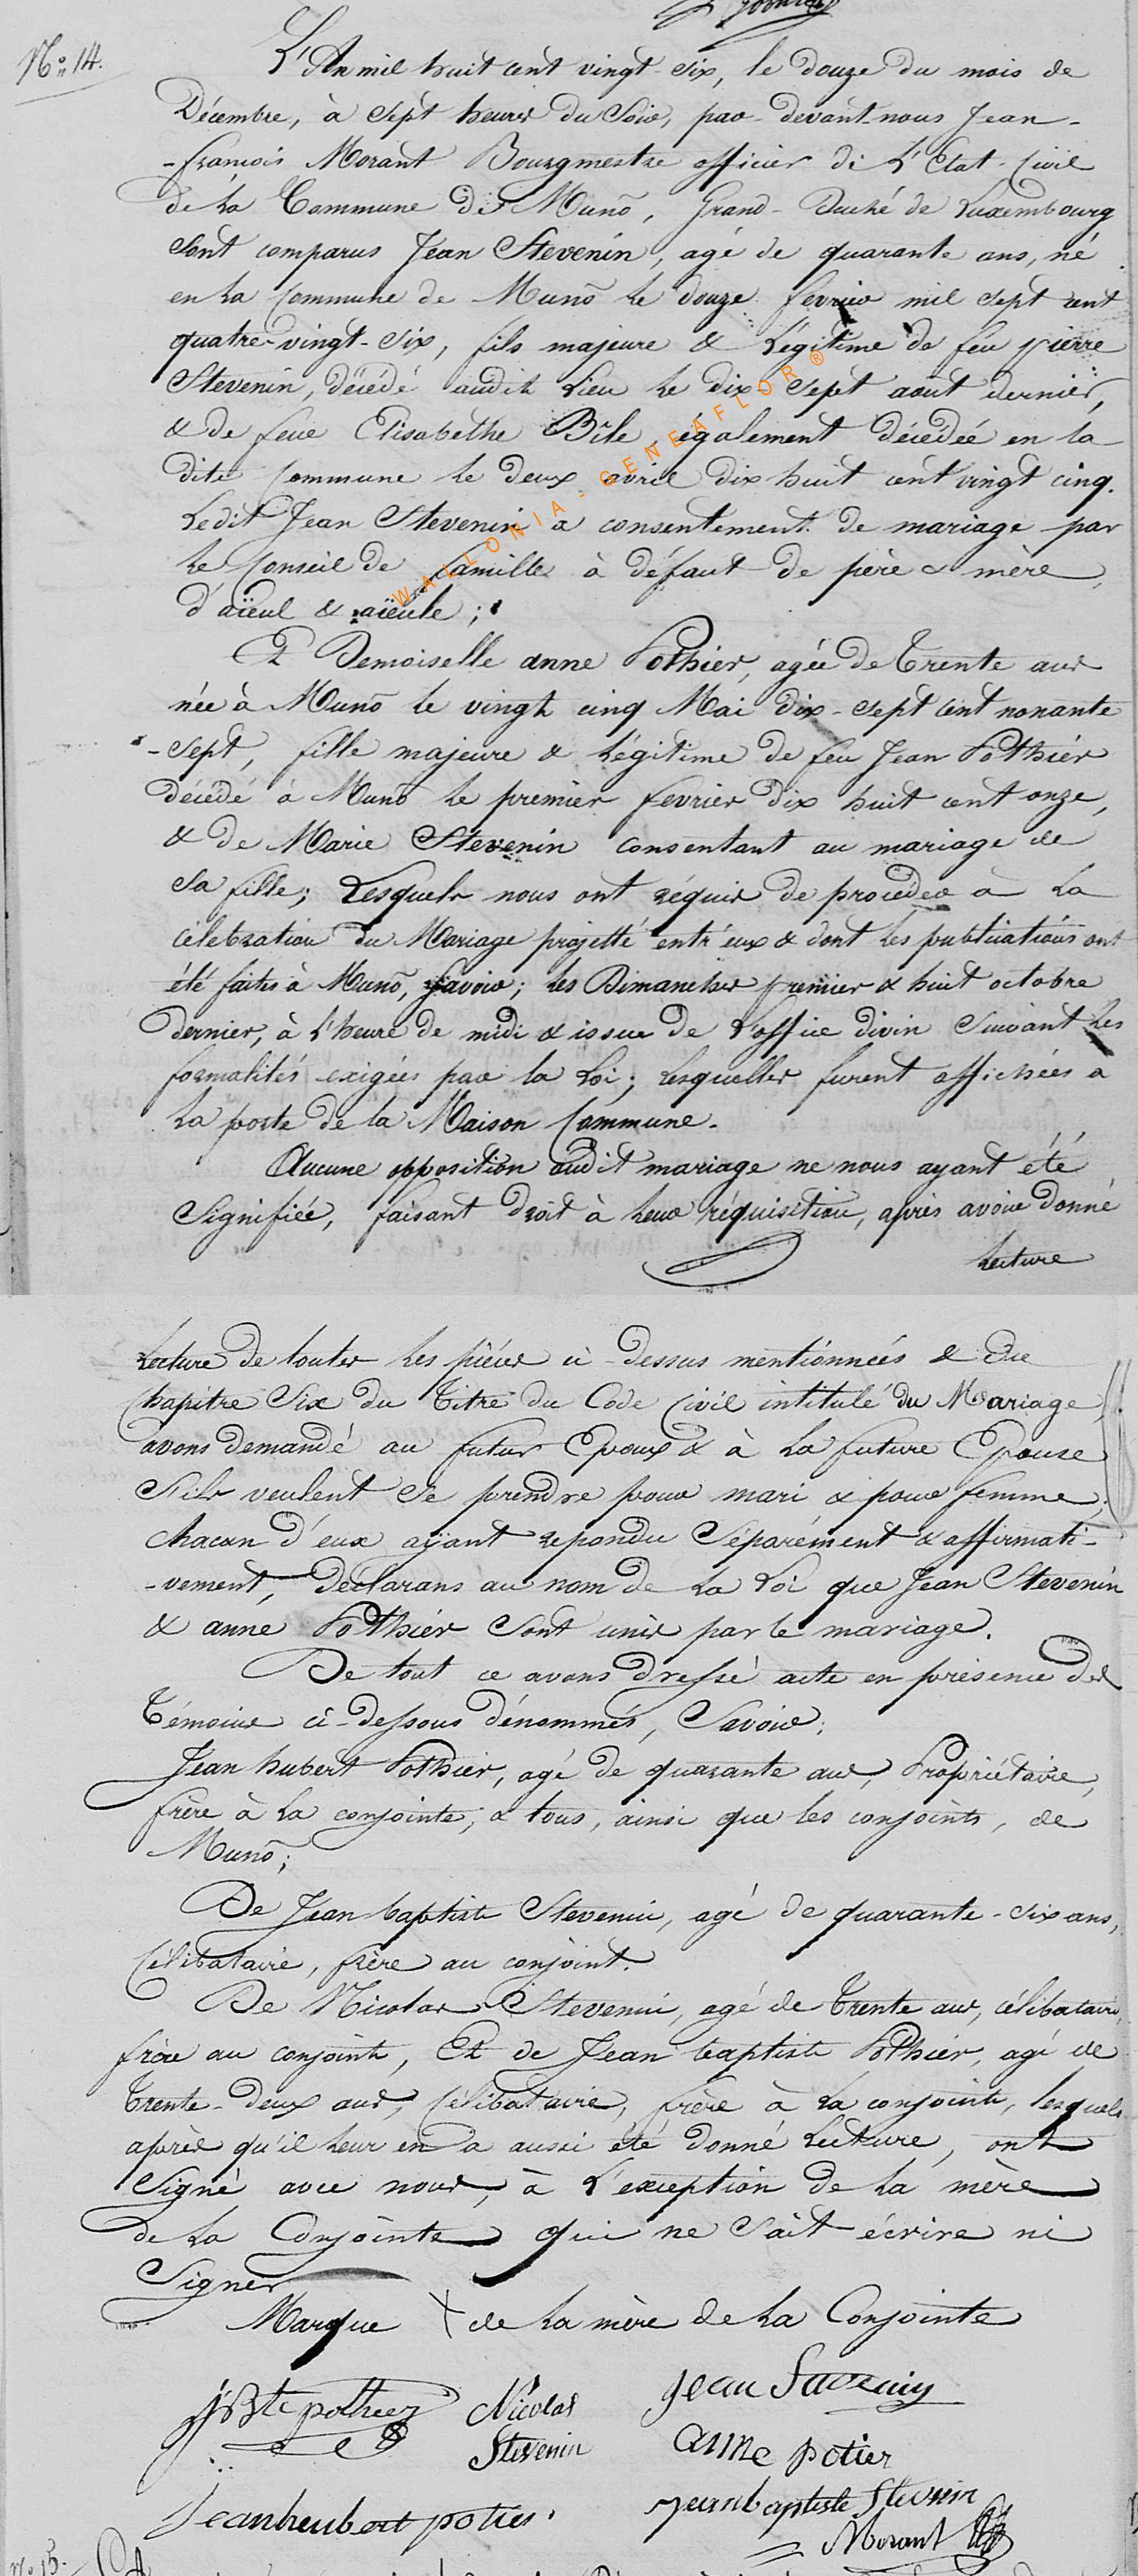 N.o 14.
L'An mil huit cent vingt-six, le douze du mois de
Décembre, à sept heures du Soir, par-devant-nous Jean-
-françois Morant Bourgmestre officier de L'Etat-Civil
de La Commune de Munô, Grand-Duché de Luxembourg
sont comparus Jean Stevenin, agé de quarante ans, né
en La Commune de Munô le douze fevrier mil sept cent
quatre-vingt-six, fils majeure & Légitime de feu pierre
Stevenin, décédé audit Lieu le dix sept aout dernier,
& de feue Elisabethe Bile, également décédée en la
dite Commune le deux avril dix huit cent vingt cinq.
Ledit Jean Stevenin a consentement de mariage par
Le Conseil de famille à défaut de père & mère
d'aïeul & aïeule;
Et Demoiselle anne Pothier, agée de Trente ans
née à Munô le vingt cinq Mai dix-sept cent nonante
-sept, fille majeure & Légitime de feu Jean Pothier
décédé à Munô le premier fevrier dix huit cent onze,
& de Marie Stevenin consentant au mariage de
sa fille; Lesquels nous ont réquis de proceder à La
célebration du Mariage projetté entr'eux & dont les publications ont
été faites à Munô, Savoir; les Dimanches premier & huit octobre
dernier, à L'heure de midi & issue de L'office divin Suivant Les
formalités exigées par la Loi; Lesquelles furent affichées a
La porte de la Maison Commune.
Aucune opposition audit mariage ne nous ayant été
Signifiée, faisant droit à Leur réquisition, après avoir donné
Lecture
Lecture de toutes Les pièces ci-dessus mentionnées & du
Chapitre Six du Titre du Code Civil intitulé du Mariage,
avons demandé au futur Epoux & à La future Epouse
S'ils veulent se prendre pour mari & pour femme;
chacun d'eux ayant repondu Séparément & affirmati-
-vement, declarans au nom de La Loi que Jean Stevenin
& anne Pothier sont unis par le mariage.
De tout ce avons dressé acte en présence des
Témoins ci-dessous dénommés, Savoir:
Jean hubert Pothier, agé de quarante ans, Propriétaire,
frère à La conjointe, & tous, ainsi que les conjoints, de
Munô;
De Jean baptiste Stevenin, agé de quarante-six ans,
Célibataire, frère au conjoint.
De Nicolas Stevenin, agé de Trente ans, célibataire,
frère au conjoint, Et de Jean baptiste Pothier, agé de
Trente-Deux ans, Célibataire, frère à La conjointe, lesquels
après qu'il Leur en a aussi été donné Lecture, ont
Signé avec nous, à L'exception de La mère
de La Conjointe qui ne Sait écrire ni
Signer
Marque + de La mère de La Conjointe
JBte pothier Nicolas Jean Stevenin
Stevenin anne potier
Jeanheubert potier. Jeanbaptiste Stevenin
Morant
N.o 15.
WALLONIA-GENEAFLOR ®